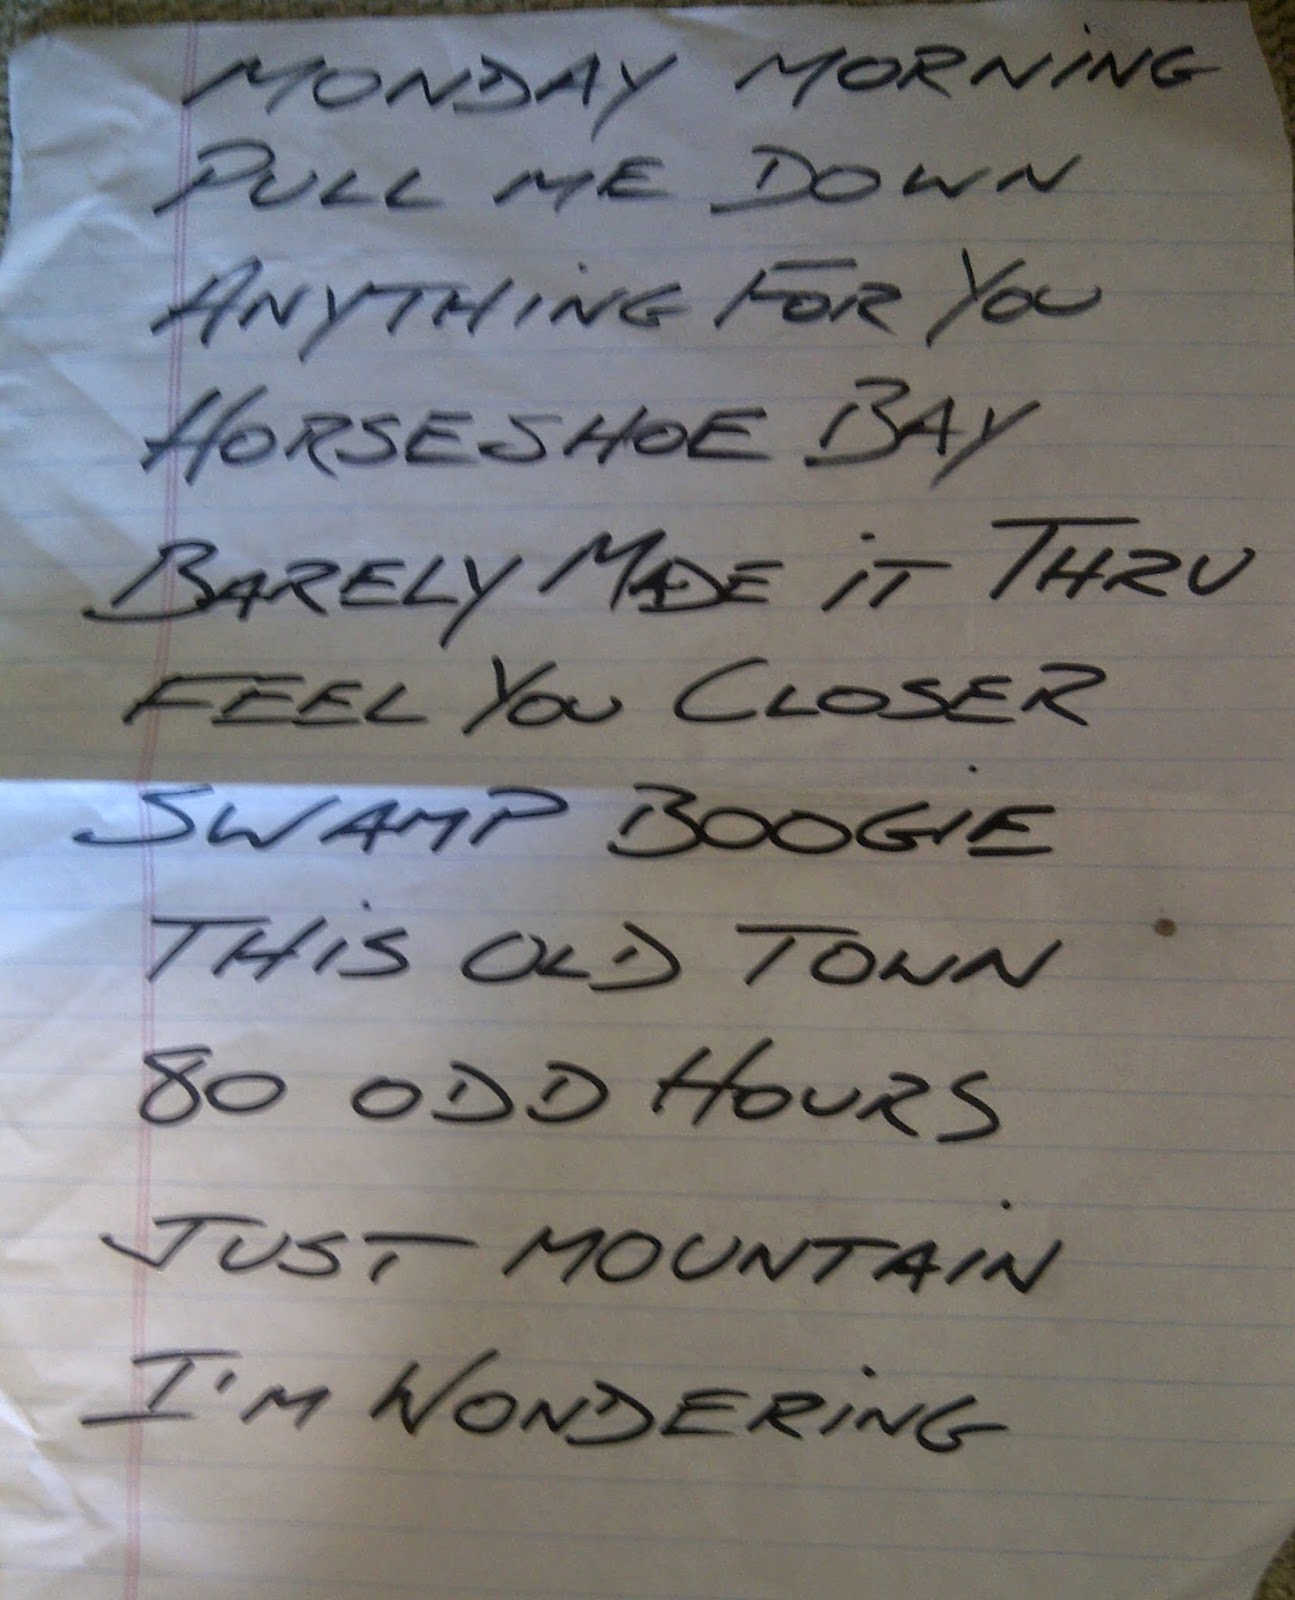 MONDAY MORNiNG
PULL ME DOWN
ANYTHiNG FOR YOU
HORSESHOE BAY
BARELY MADE iT THRU
FEEL YOU CLOSER
SWAMP BOOGiE
THiS OLD TOWN
80 ODD HOURS
JUST MOUNTAiN
I'M WONDERiNG